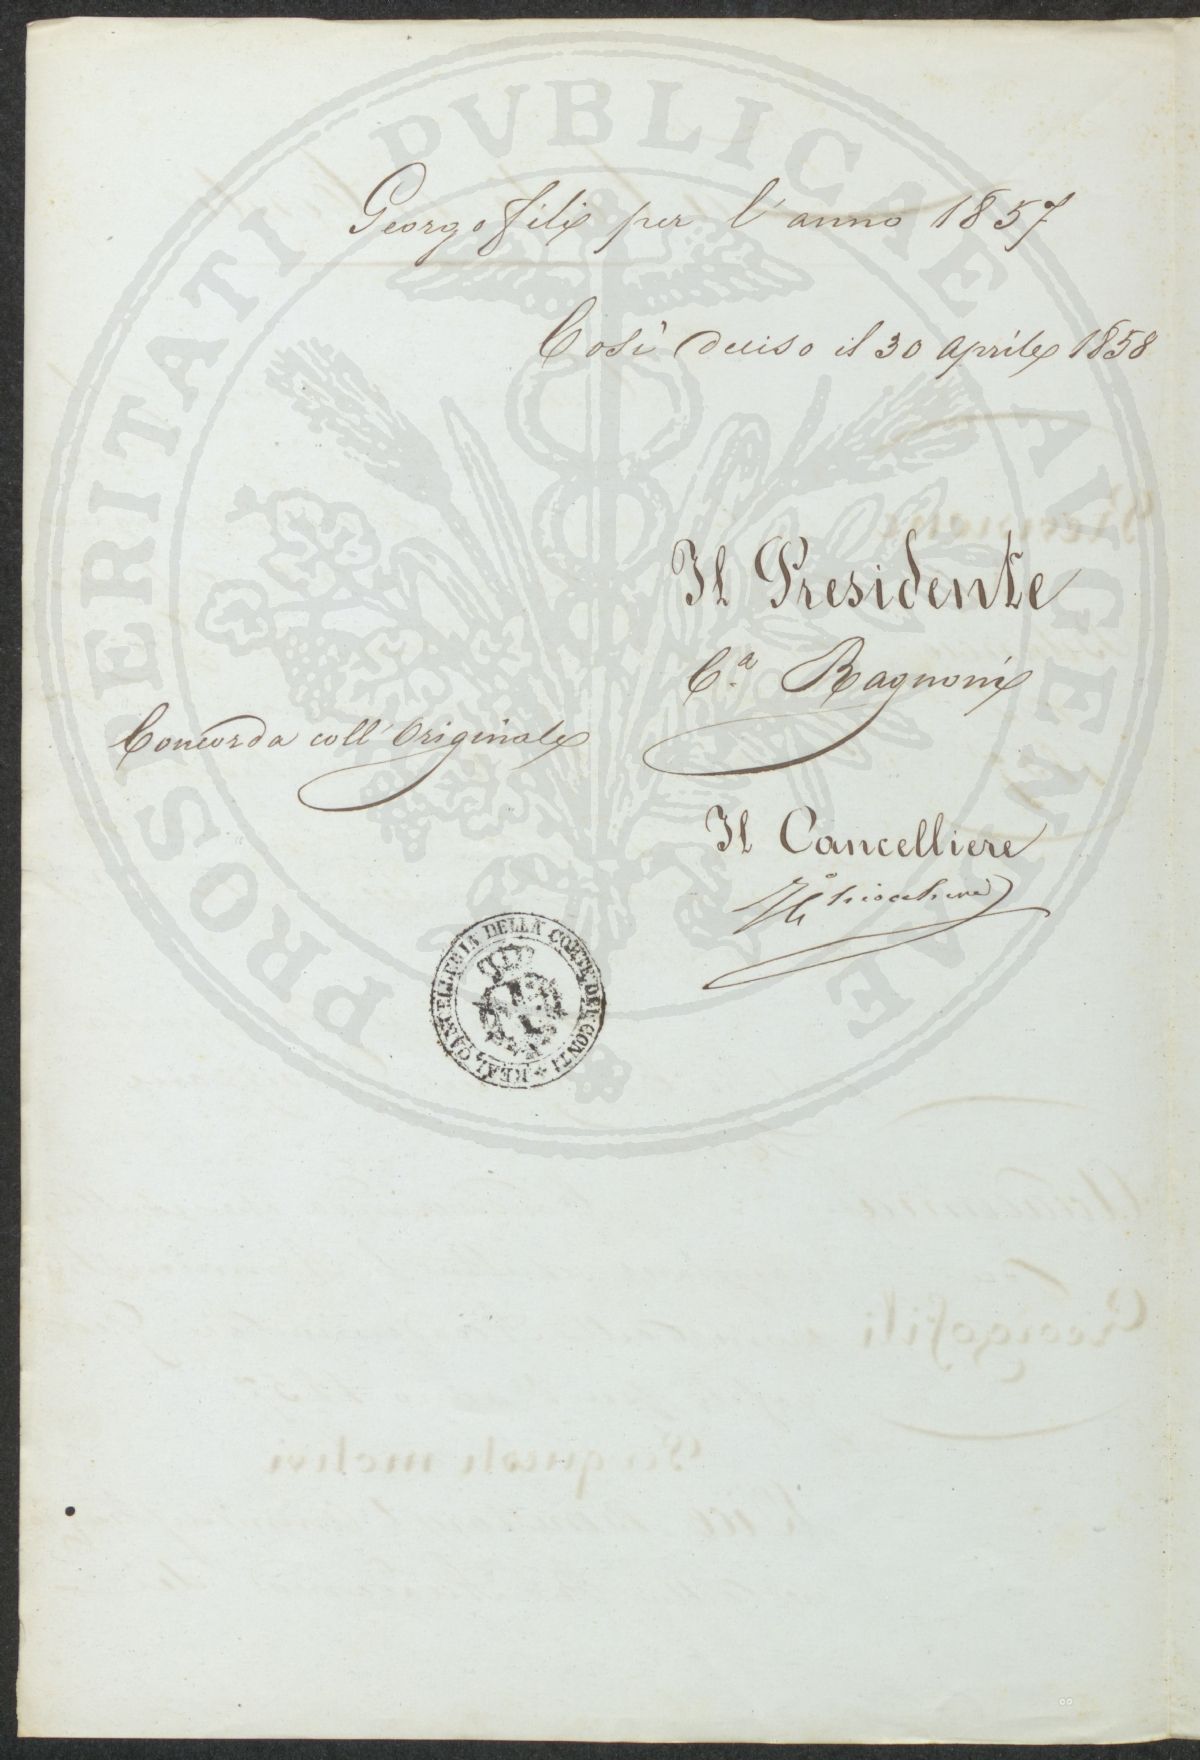 PROSPERITATI PVBLICAE AVGENDAE
Georgofili per l'anno 1857
Così deciso il 30 Aprile 1858
Il Presidente
C.a Bagnoni
Concorda coll'Originale
Il Cancelliere
REAL CANCELLERIA DELLA CORTE DEI CONTI